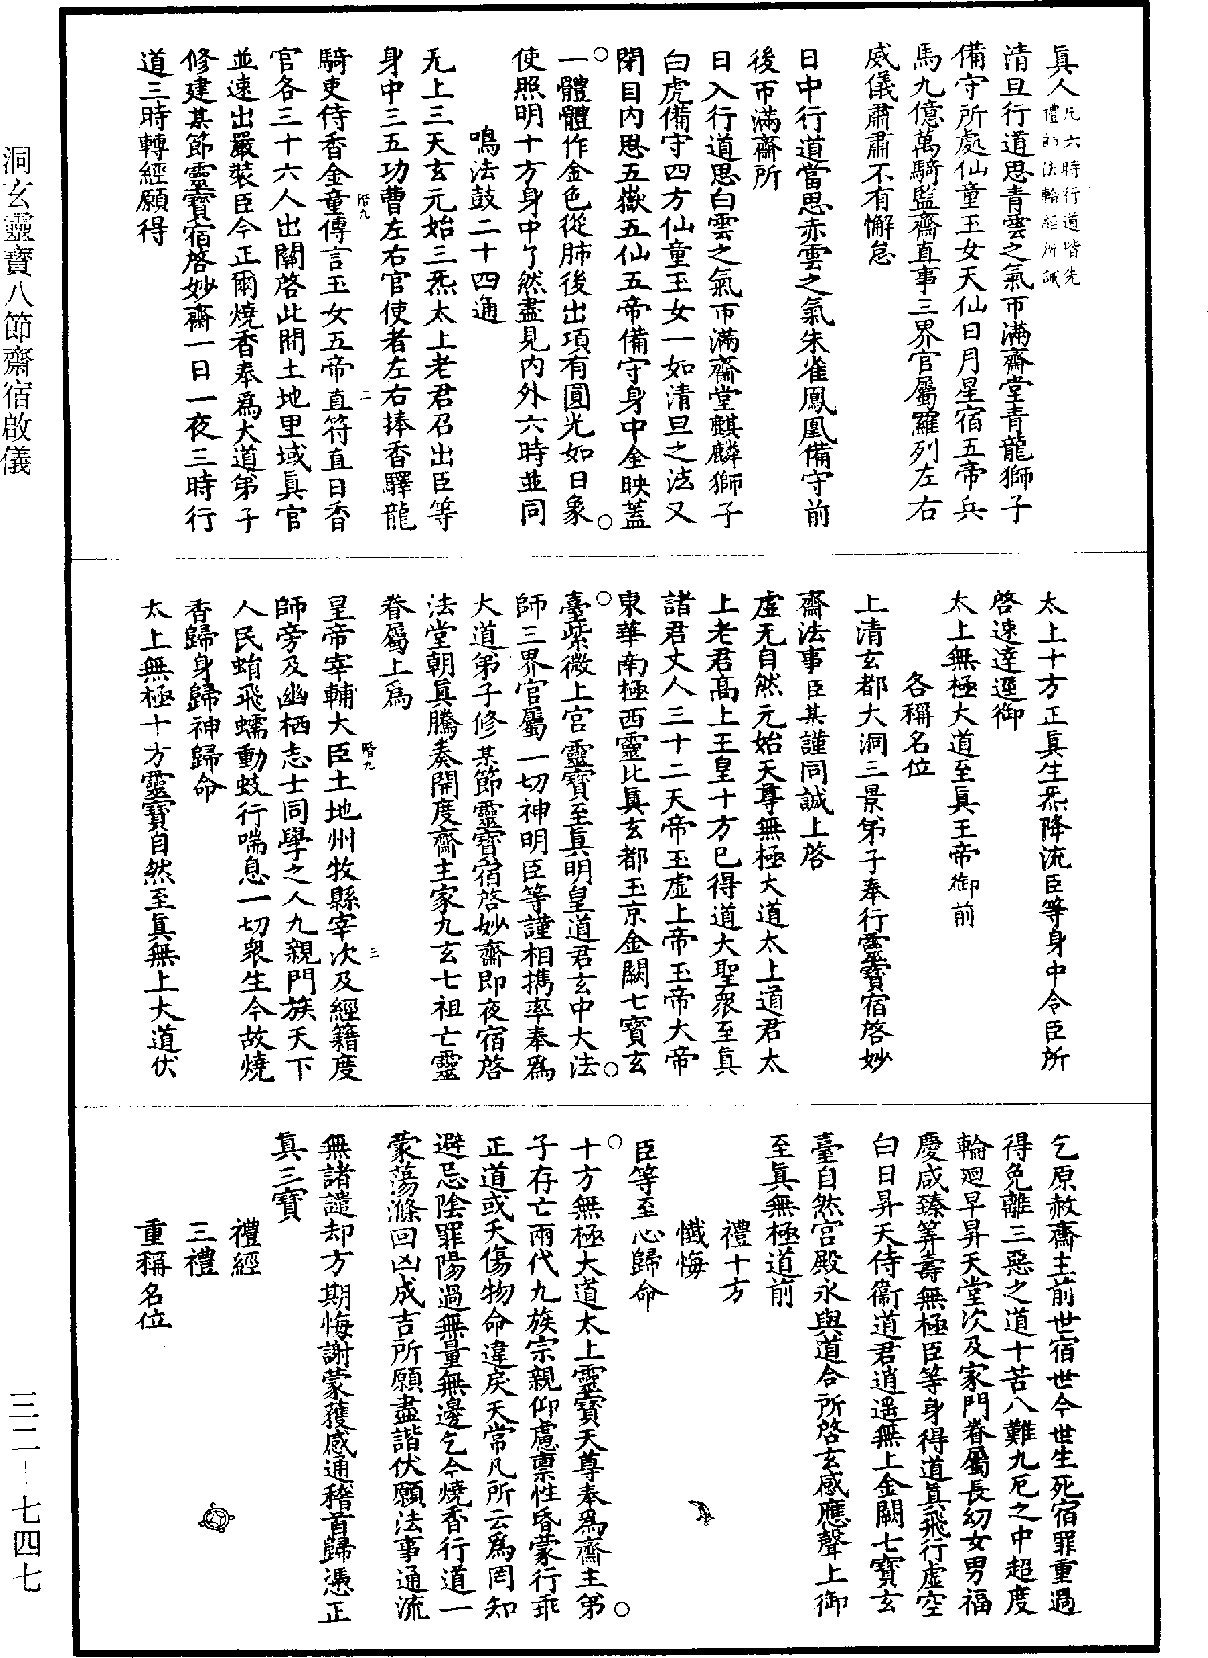 真人凡六時行道皆先
禮如法輪經所誡
清旦行道思青雲之氣帀滿齋堂青龍獅子
備守所處仙童玉女天仙日月星宿五帝兵
馬九億萬騎監齋直事三界官屬羅列左右
威儀肅肅不有懈怠
日中行道當思赤雲之氣朱雀鳳凰備守前
後帀滿齋所
日入行道思白雲之氣帀滿齋堂麒麟獅子
白虎備守四方仙童玉女一如清旦之法又
閉目內思五嶽五仙五帝備守身中金映蓋
一體體作金色從肺後出項有圓光如日象
使照明十方身中了然盡見內外六時並同
鳴法鼓二十四通
无上三天玄元始三炁太上老君召出臣等
身中三五功曹左右官使者左右捧香驛龍
騎吏侍香金童傳言玉女五帝直符直日香
官各三十六人出關啓此間土地里域真官
並速出嚴裝臣今正爾燒香奉爲大道弟子
修建某節靈寶宿啓妙齋一日一夜三時行
道三時轉經願得
太上十方正真生炁降流臣等身中令臣所
啓速達逕御
太上無極大道至真玉帝御前
各稱名位
上清玄都大洞三景弟子奉行靈寶宿啓妙
齋法事臣某謹同誠上啓
虛无自然元始天尊無極大道太上道君太
上老君高上玉皇十方已得道大聖衆至真
諸君丈人三十二天帝玉虛上帝玉帝大帝
東華南極西靈北真玄都玉京金闕七寶玄
臺紫微上宮靈寶至真明皇道君玄中大法
師三界官屬一切神明臣等謹相攜率奉爲
大道弟子修某節靈寶宿啓妙齋即夜宿啓
法堂朝真騰奏開度齋主家九玄七祖亡靈
眷屬上爲
皇帝宰輔大臣土地州牧縣宰次及經籍度
師旁及幽栖志士同學之人九親門族天下
人民蛕飛蠕動蚑行喘息一切衆生今故燒
香歸身歸神歸命
太上無極十方靈寶自然至真無上大道伏
乞原赦齋主前世宿世今世生死宿罪重過
得免離三惡之道十苦八難九厄之中超度
輪廻早昇天堂次及家門眷屬長幼女男福
慶咸臻等壽無極臣等身得道真飛行虛空
白日昇天侍衛道君逍遥無上金闕七寶玄
臺自然宮殿永與道合所啓玄感應聲上御
至真無極道前
禮十方
懺悔
臣等至心歸命
十方無極大道太上靈寶天尊奉爲齋主弟
子存亡兩代九族宗親仰慮稟性昏蒙行乖
正道或夭傷物命違戾天常凡所云爲罔知
避忌陰罪陽過無量無邊乞今燒香行道一
蒙蕩滌回凶成吉所願盡諧伏願法事通流
無諸譴却方期悔謝蒙獲感通稽首歸憑正
真三寶
禮經
三禮
重稱名位
階九
二
階九
三
洞玄靈寶八節齋宿啟儀
三二-七四七